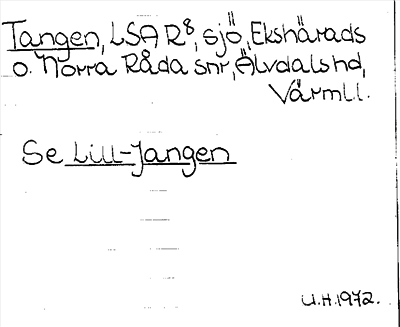 Tangen, LSA R⁸, sjö, Ekshärads
o. Norra Råda snr, Älvdals hd,
Värml.
Se Lill-Jangen
U.H. 1972.